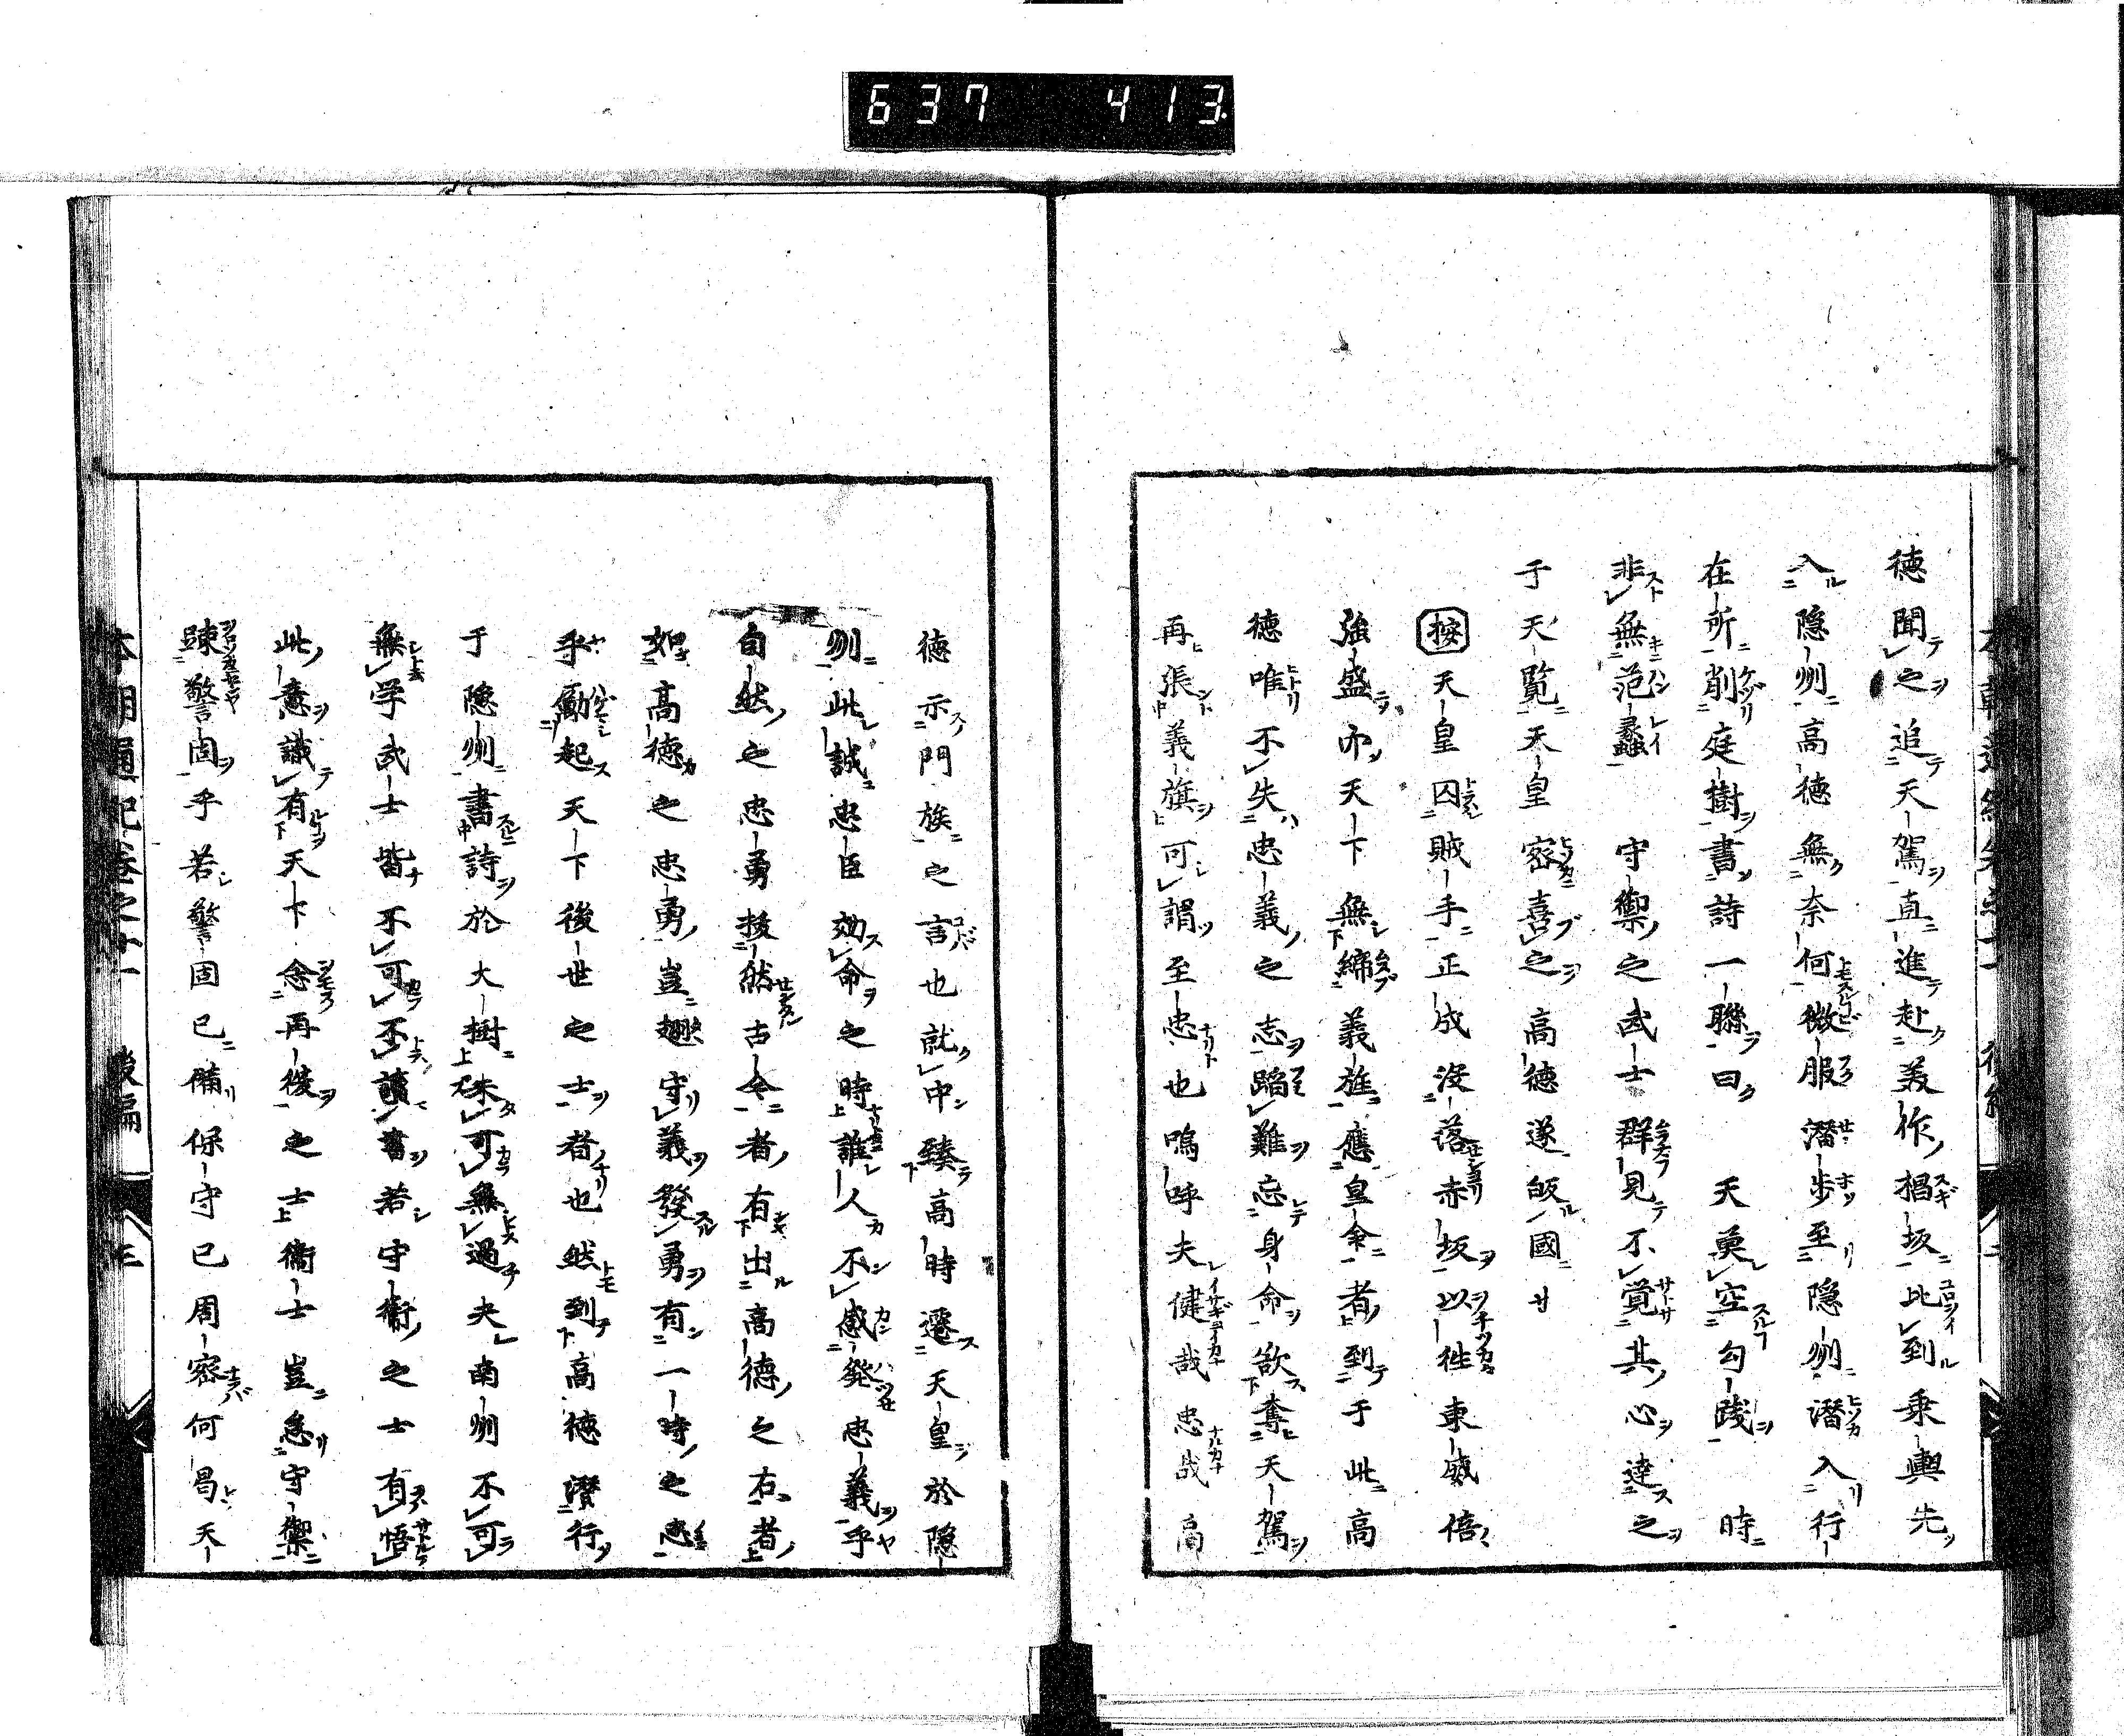 637 413
徳聞之追天駕直進赴美作椙坂比到乗輿先
入隠州高徳無奈何微服潜歩至隠州潜入行
在所削庭樹書詩一聯曰 天莫空勾践 時
非無范蠡 守禦之武士群見不覚其心達之
于天覧天皇密喜之高徳遂皈國せ
按天皇囚賊手正成没落赤坂以徃東威倍
強盛而天下無締義旌應皇命者到于此高
徳唯不失忠義之志蹈難忘身命欲奪天駕
再張義旗可謂至忠也嗚呼夫健哉忠哉高
徳示門族之言也就中臻高時遷天皇於隠
州此誠忠臣効命之時誰人不感発忠義乎
自然之忠勇挍然古今者有出高徳之右者
如高徳之忠勇豈翅守義發勇有一時之忠
乎勵起天下後世之士者也然到高徳潜行
于隠州書詩於大樹殊可無過夫南州不可
無学武士皆不可不讀書若守衛之士有悟
此意識有天下念再復之士衛士豈怠守禦
踈警固乎若警固已備保守已周密何曷天
本朝通紀巻之十一 後編 三